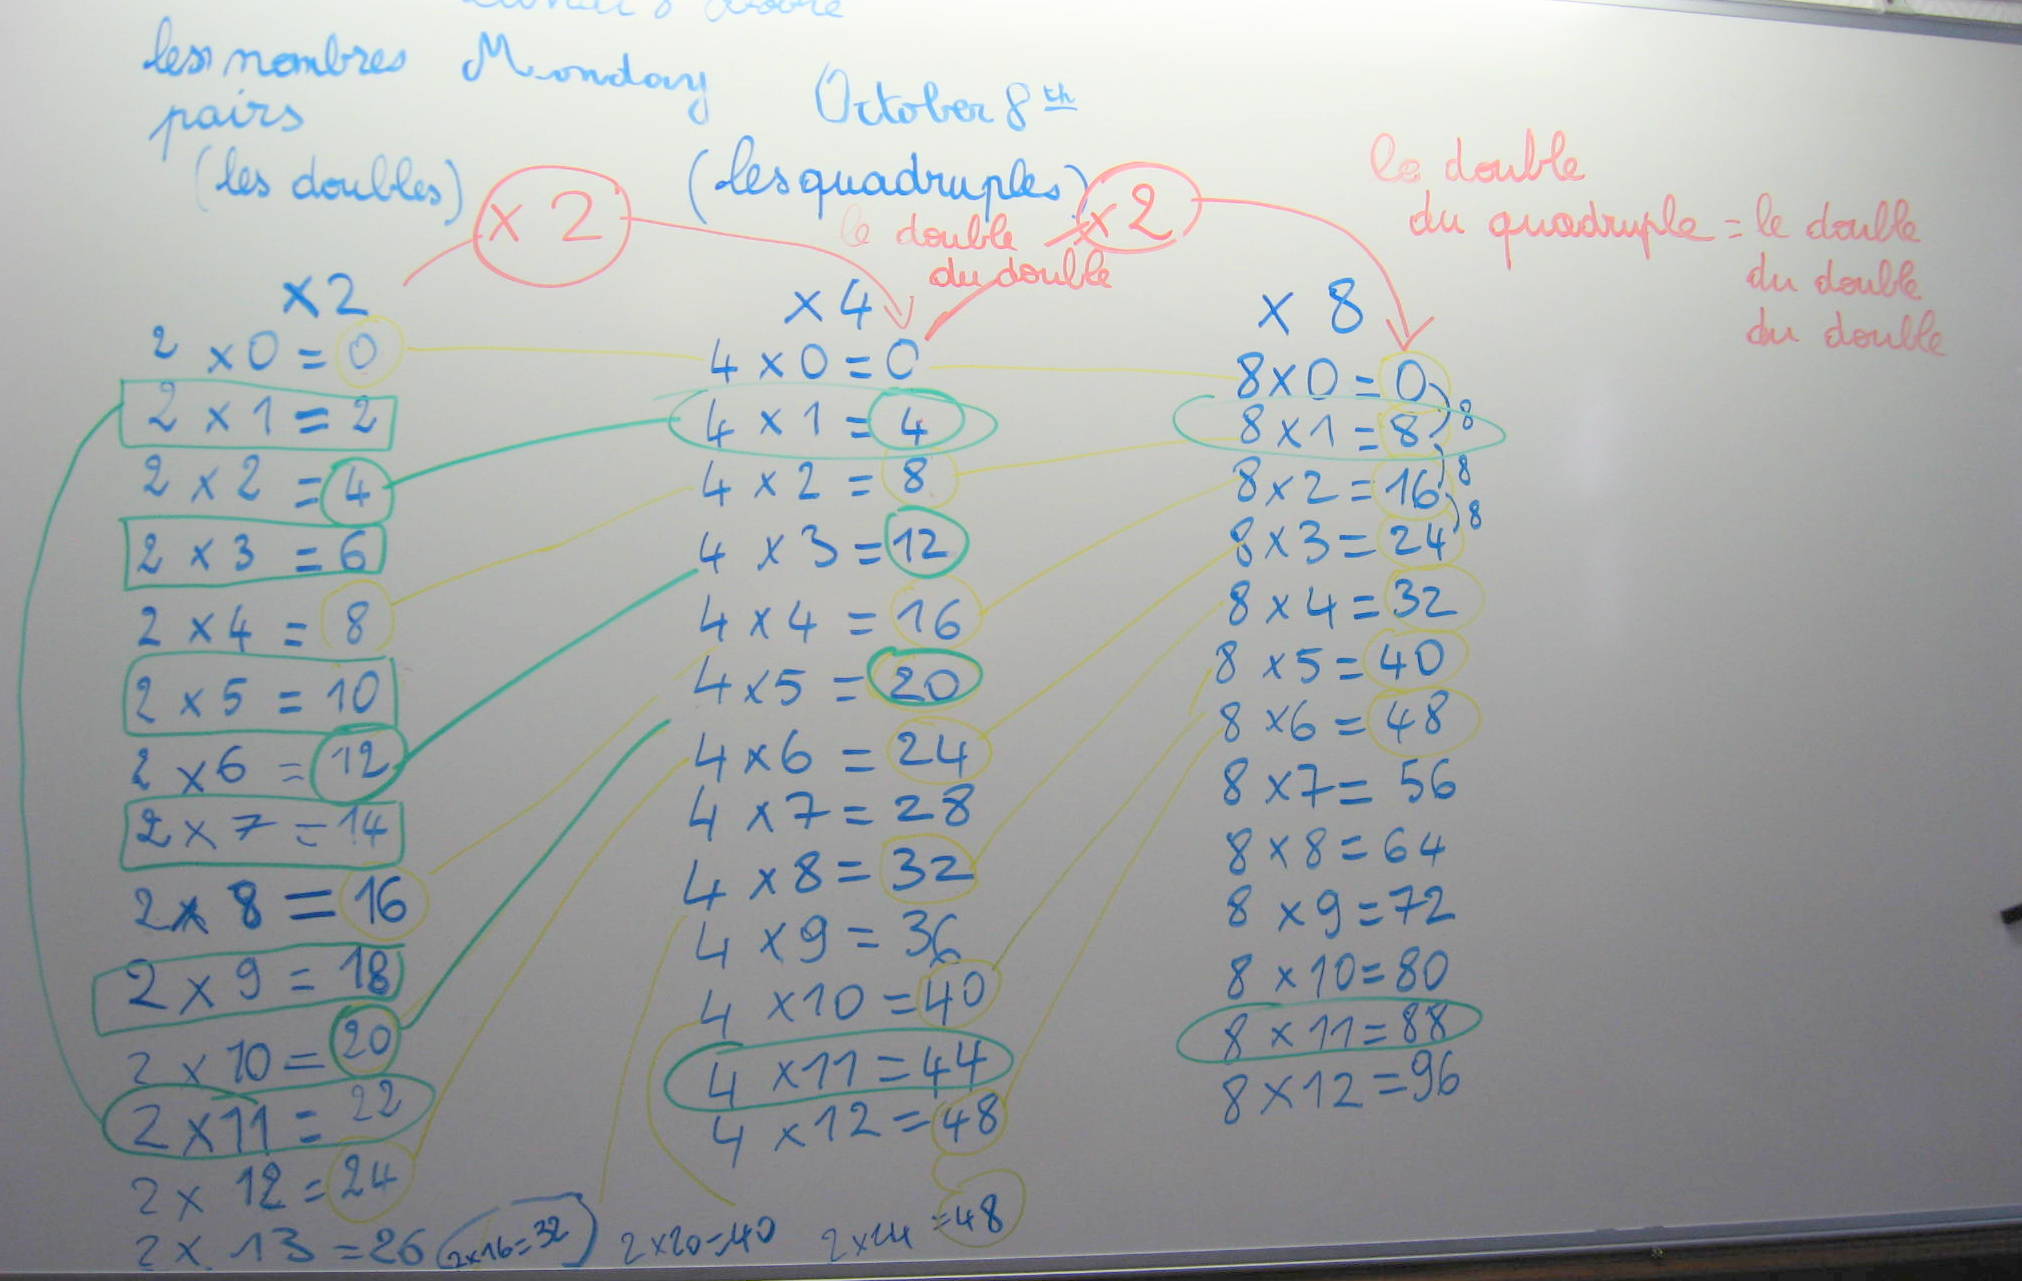 les nombres
pairs
(les doubles)
Monday October 8th
(les quadruples)
x 2
x 2
le double
du double
le double
du quadruple = le double
du double
du double
x2
2 x 0 = 0
2 x 1 = 2
2 x 2 = 4
2 x 3 = 6
2 x 4 = 8
2 x 5 = 10
2 x 6 = 12
2 x 7 = 14
2 x 8 = 16
2 x 9 = 18
2 x 10 = 20
2 x 11 = 22
2 x 12 = 24
2 x 13 = 26
2x16=32
2x20=40
2x24 =48
x 4
4 x 0 = 0
4 x 1 = 4
4 x 2 = 8
4 x 3 = 12
4 x 4 = 16
4 x 5 = 20
4 x 6 = 24
4 x 7 = 28
4 x 8 = 32
4 x 9 = 36
4 x 10 = 40
4 x 11 = 44
4 x 12 = 48
x 8
8 x 0 = 0
8 x 1 = 8
8 x 2 = 16
8 x 3 = 24
8 x 4 = 32
8 x 5 = 40
8 x 6 = 48
8 x 7 = 56
8 x 8 = 64
8 x 9 = 72
8 x 10 = 80
8 x 11 = 88
8 x 12 = 96
8
8
8